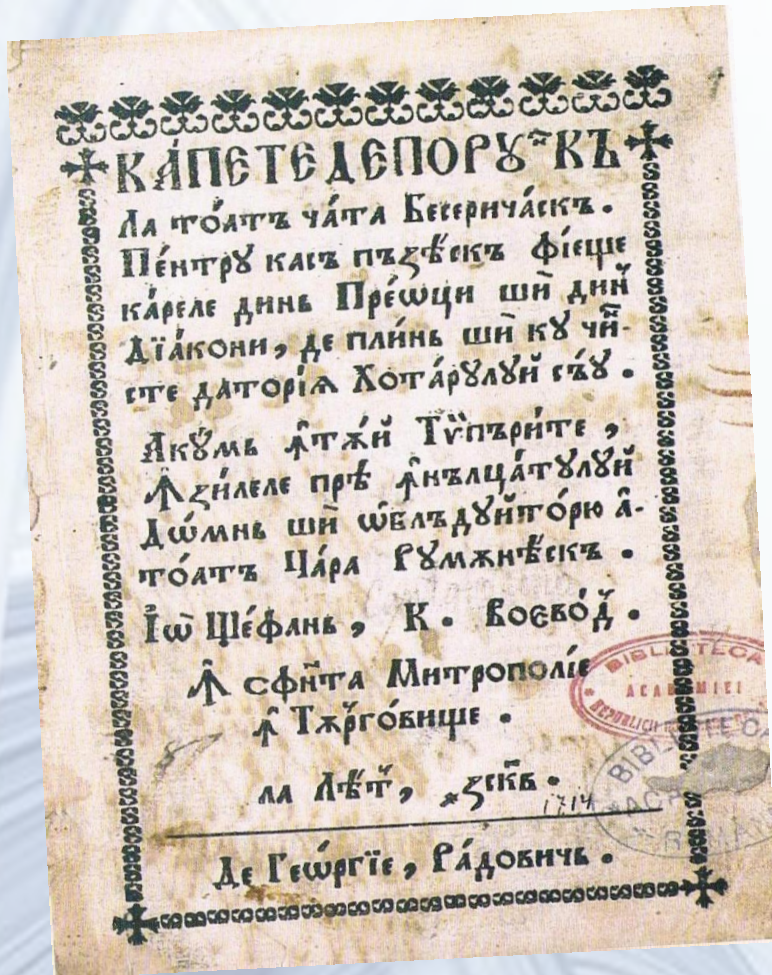 КА́ПЕТЕ ДЕПОРꙊⷩ҇КЪ
Ла то́атъ ча́та Бесерича́скъ.
Пе́нтрꙋ касъ пъзѣ́скъ фі́еще
ка́реле динь Пре́ѡци шѝ дин̾
Дїа́кони, де пли́нь шѝ кꙋ чи́-
сте датори́ѧ Хота́рꙋлꙋй съ́ꙋ.
Акꙋ́мь ꙟ҆тѫ́й Тѵпъри́те,
Ꙟ҆ зи́леле прѣ ꙟ҆нълца́тꙋлꙋй
Дѡ́мнь шѝ ѡ҆блъдꙋйто́рю а҆-
то́атъ Ца́ра Рꙋмѫнѣ́скъ.
І҆ѡ̀ Ще́фань, К. Воево́д.
Ꙟ҆ сфи́та Митрополі́е
ꙟ҆ Тѫрго́вище.
ла Лѣ́т, ҂зскв.
1714
Де Геѡ́ргїе, Ра́довичь.
BIBLIOTECA
ACADEMIEI